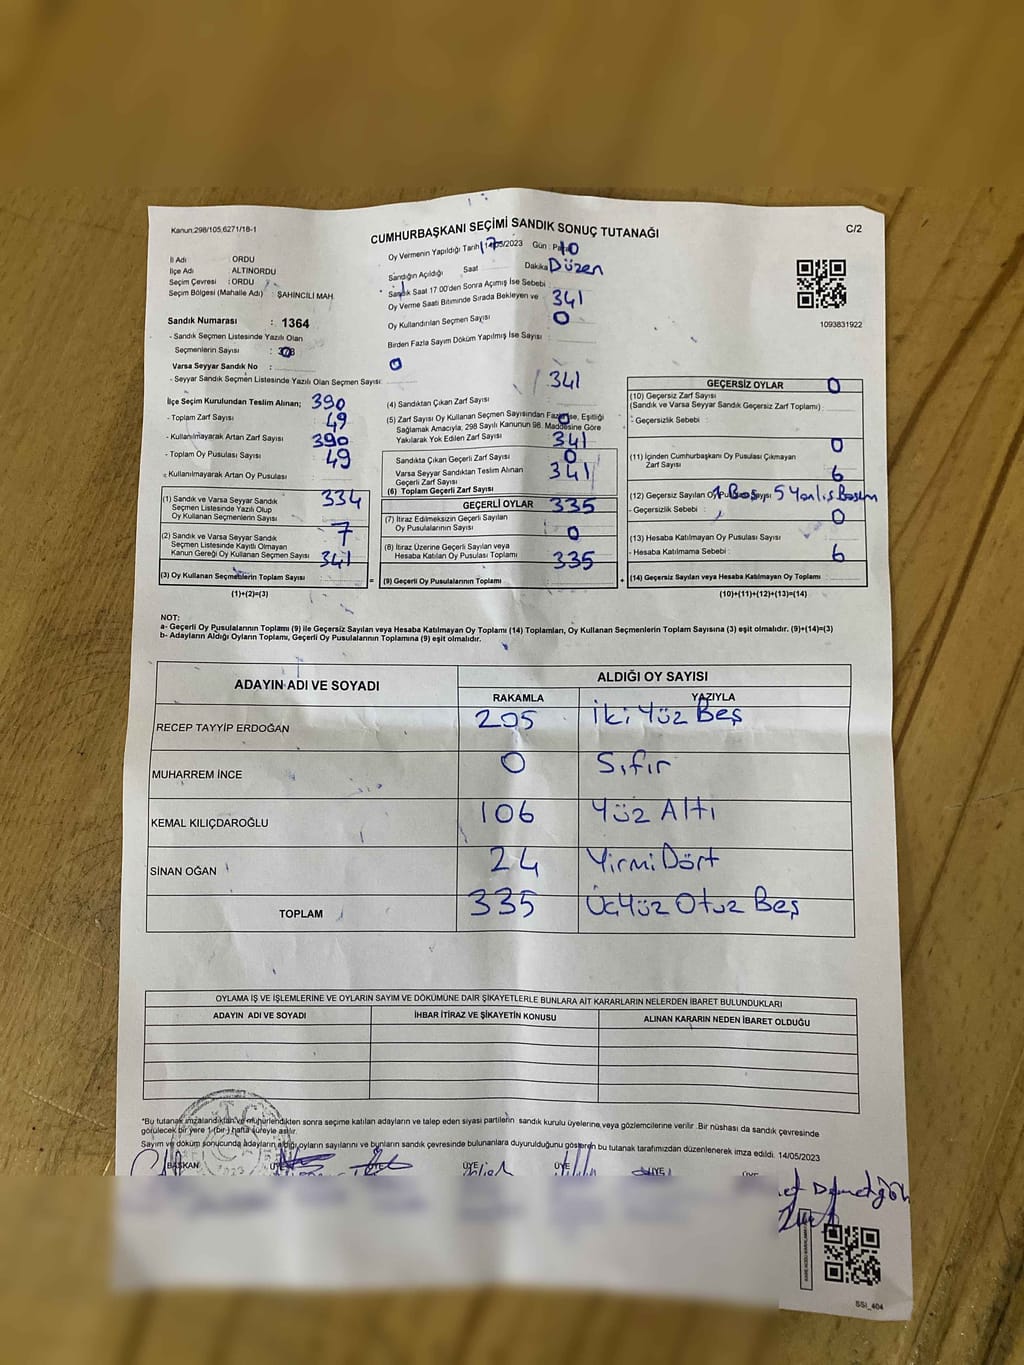 Kanun:298/105,6271/18-1
CUMHURBAŞKANI SEÇİMİ SANDIK SONUÇ TUTANAĞI
C/2
İl Adı : ORDU
İlçe Adı : ALTINORDU
Seçim Çevresi : ORDU
Seçim Bölgesi (Mahalle Adı) : ŞAHİNCİLİ MAH.
Oy Vermenin Yapıldığı Tarih 14/05/2023 Gün :
17 10
Sandığın Açıldığı Saat Dakika Düzen
Sandık Saat 17:00'den Sonra Açılmış İse Sebebi
Oy Verme Saati Bitiminde Sırada Bekleyen ve 341
Oy Kullandırılan Seçmen Sayısı 0
Birden Fazla Sayım Döküm Yapılmış İse Sayısı
1093831922
Sandık Numarası : 1364
- Sandık Seçmen Listesinde Yazılı Olan
Seçmenlerin Sayısı :
Varsa Seyyar Sandık No : 0
- Seyyar Sandık Seçmen Listesinde Yazılı Olan Seçmen Sayısı
İlçe Seçim Kurulundan Teslim Alınan; 390
- Toplam Zarf Sayısı 49
- Kullanılmayarak Artan Zarf Sayısı 390
- Toplam Oy Pusulası Sayısı 49
- Kullanılmayarak Artan Oy Pusulası
(1) Sandık ve Varsa Seyyar Sandık 334
Seçmen Listesinde Yazılı Olup
Oy Kullanan Seçmenlerin Sayısı
(2) Sandık ve Varsa Seyyar Sandık 7
Seçmen Listesinde Kayıtlı Olmayan
Kanun Gereği Oy Kullanan Seçmen Sayısı 341
(3) Oy Kullanan Seçmenlerin Toplam Sayısı
(1)+(2)=(3)
341
(4) Sandıktan Çıkan Zarf Sayısı
(5) Zarf Sayısı Oy Kullanan Seçmen Sayısından Fazla İse, Eşitliği 0
Sağlamak Amacıyla; 298 Sayılı Kanunun 98. Maddesine Göre
Yakılarak Yok Edilen Zarf Sayısı 341
Sandıkta Çıkan Geçerli Zarf Sayısı 0
Varsa Seyyar Sandıktan Teslim Alınan 341
Geçerli Zarf Sayısı
(6) Toplam Geçerli Zarf Sayısı
GEÇERLİ OYLAR 335
(7) İtiraz Edilmeksizin Geçerli Sayılan
Oy Pusulalarının Sayısı 0
(8) İtiraz Üzerine Geçerli Sayılan veya
Hesaba Katılan Oy Pusulası Toplamı 335
= (9) Geçerli Oy Pusulalarının Toplamı +
GEÇERSİZ OYLAR 0
(10) Geçersiz Zarf Sayısı
(Sandık ve Varsa Seyyar Sandık Geçersiz Zarf Toplamı) :
- Geçersizlik Sebebi :
0
(11) İçinden Cumhurbaşkanı Oy Pusulası Çıkmayan
Zarf Sayısı 6
(12) Geçersiz Sayılan Oy Pusulası Sayısı 1 Boş 5 Yanlış Basım
- Geçersizlik Sebebi : 0
(13) Hesaba Katılmayan Oy Pusulası Sayısı
- Hesaba Katılmama Sebebi : 6
(14) Geçersiz Sayılan veya Hesaba Katılmayan Oy Toplamı :
(10)+(11)+(12)+(13)=(14)
NOT:
a- Geçerli Oy Pusulalarının Toplamı (9) ile Geçersiz Sayılan veya Hesaba Katılmayan Oy Toplamı (14) Toplamları, Oy Kullanan Seçmenlerin Toplam Sayısına (3) eşit olmalıdır. (9)+(14)=(3)
b- Adayların Aldığı Oyların Toplamı, Geçerli Oy Pusulalarının Toplamına (9) eşit olmalıdır.
ADAYIN ADI VE SOYADI
ALDIĞI OY SAYISI
RAKAMLA YAZIYLA
RECEP TAYYİP ERDOĞAN 205 İki Yüz Beş
MUHARREM İNCE 0 Sıfır
KEMAL KILIÇDAROĞLU 106 Yüz Altı
SİNAN OĞAN 24 Yirmi Dört
TOPLAM 335 ÜçYüz Otuz Beş
OYLAMA İŞ VE İŞLEMLERİNE VE OYLARIN SAYIM VE DÖKÜMÜNE DAİR ŞİKAYETLERLE BUNLARA AİT KARARLARIN NELERDEN İBARET BULUNDUKLARI
ADAYIN ADI VE SOYADI İHBAR İTİRAZ VE ŞİKAYETİN KONUSU ALINAN KARARIN NEDEN İBARET OLDUĞU
*Bu tutanak imzalandıktan ve mühürlendikten sonra seçime katılan adayların ve talep eden siyasi partilerin sandık kurulu üyelerine veya gözlemcilerine verilir. Bir nüshası da sandık çevresinde
görülecek bir yere 1 (bir) hafta süreyle asılır.
Sayım ve döküm sonucunda adayların aldığı oyların sayılarını ve bunların sandık çevresinde bulunanlara duyurulduğunu gösteren bu tutanak tarafımızdan düzenlenerek imza edildi. 14/05/2023
BAŞKAN ÜYE ÜYE ÜYE ÜYE
SSI_404